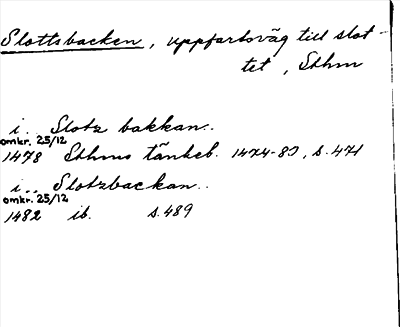 Slottsbacken, uppfartsväg till slot-
tet, Sthm
i.. Slotz bakkan..
omkr. 25/12
1478 Sthms tänkeb. 1474-83, s. 471
i.. Slotzbackan..
omkr. 25/12
1482 ib. s. 489